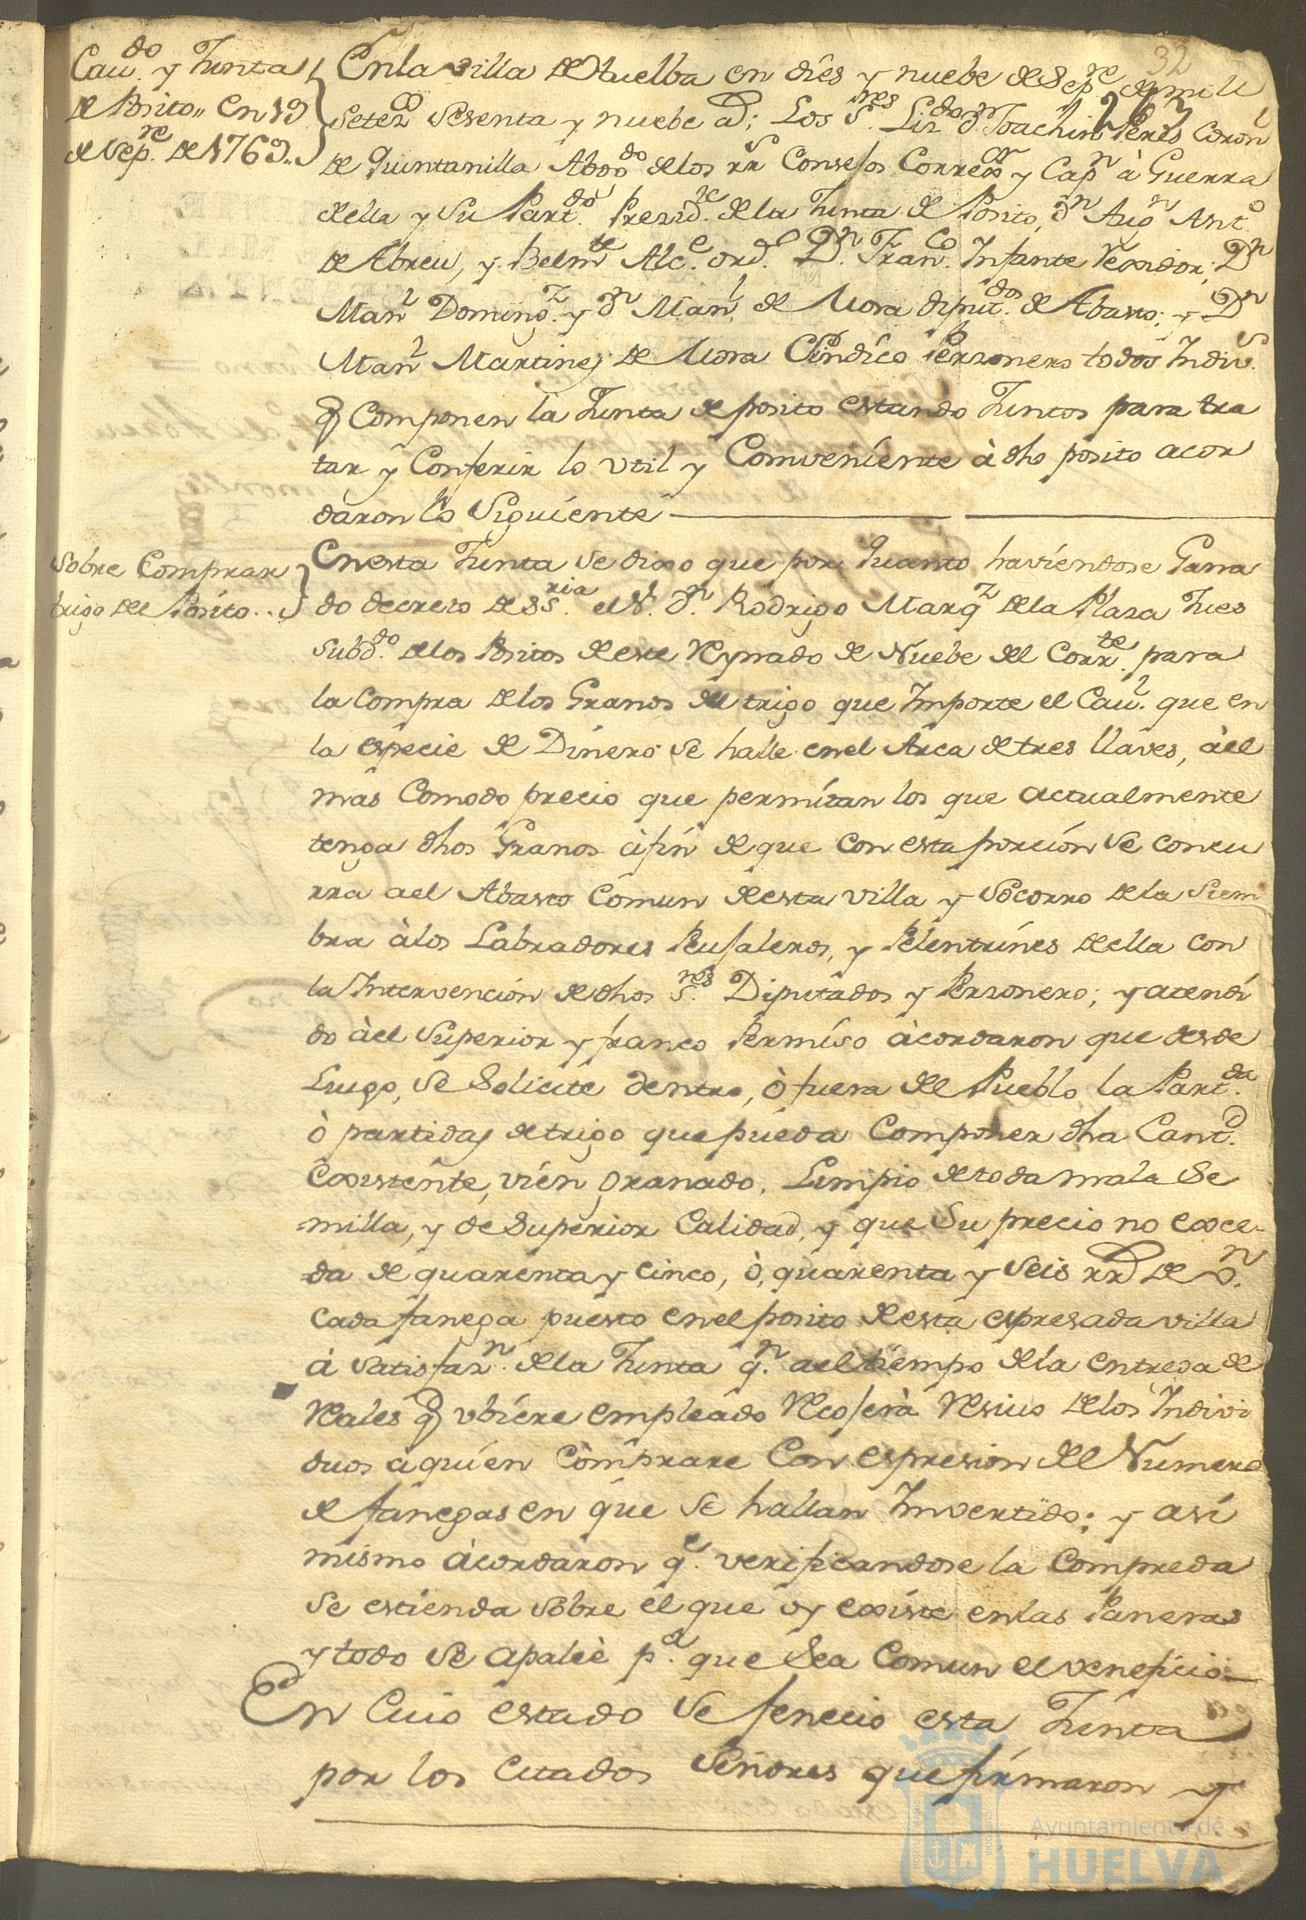 32
263
Cau.do y Junta
de Posito,, en 19
de Sep.re de 1769..
En la villa de Huelba en dies y nuebe de Sep.re de mill
setez.os sesenta y nuebe a.s; Los S.res Liz.do D.n Joachin Peres Coron.l
de Quintanilla Abog.do de los R.s Consejos Correx.or y Cap.n à Guerra
de ella y su Part.do Presid.te de la Junta de Posito, D.n Aug.n Ant.o
de Abreu, y Belm.te Alc.e ord.o D.n Fran.co Infante Rexidor; D.n
Man.l Doming.z y D.n Man.l de Mora diput.dos de Abasto; y D.n
Man.l Martinez de Mora Sindico Personero todos Indiv.s
q Componen la Junta de posito estando Juntos para tra
tar y Conferir lo vtil y Comveniente à dho posito acor
daron lo Siguiente
Sobre Comprar
trigo del Posito..
En esta Junta se dixo que por quanto haviendose Gana
do decreto de S S.ria el S.r D.n Rodrigo Marq.z de la Plaza Jues
Subd.do de los Positos de este Reynado de Nuebe del Corr.te para
la compra de los Granos de trigo que Importe el Cau.l que en
la especie de Dinero se halle en el Arca de tres llaves, àel
mas Comodo precio que permitan los que actualmente
tenga dhos Granos àfin de que con esta porción se concu
rra ael Abasto Comun de esta villa y Socorro de la Siem
bra à los Labradores Peujaleros, y Pelentrines de ella con
la Intervención de dhos S.res Diputados y Personero; y atendi
do àel Superior y franco Permiso àcordaron que desde
Luego, se Solicite dentro, ò fuera del Pueblo la Part.da
ò partidas de trigo que pueda Componer dha Cant.d
Coexistente, vien granado, Limpio de toda mala Se
milla, y de Superior Calidad, y que Su precio no exce-
da de quarenta y cinco, ò, quarenta y seis rr.s de v.n
cada fanega puesto en el posito de esta espresada villa
à satisfaz.n de la Junta q.n ael tiempo de la entrega de
Reales q vbiere empleado Recojerà Resivo de los Indivi
duos aquien Comprare Con espresion del Numero
de fanegas en que se hallan Invertido; y asi
mismo àcordaron q.e verificandose la Compreda
se estienda sobre el que oy existe en las Paneras
y todo se apaleè p.a que Sea Comun el veneficio
En Cuio estado se fenecio esta Junta
por los Citados Señores que firmaron y
Ayuntamiento de
HUELVA